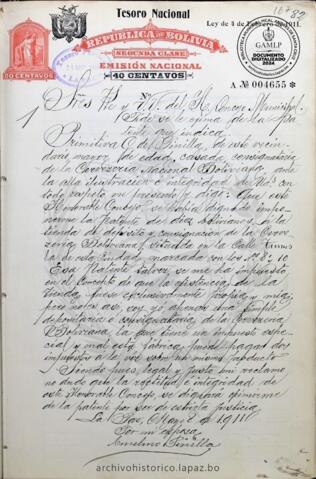 Tesoro Nacional
Ley de 4 de Febrero de 1911.
REPUBLICA DE BOLIVIA
SEGUNDA CLASE
EMISIÓN NACIONAL
40 CENTAVOS
20 CENTAVOS
GAMLP
DOCUMENTO
DIGITALIZADO
2024
A No 004655 *
Sres. P. y V.V. del H. Concejo Municipal
Pide se le exima de la pa-
tente que indica
Primitiva C. de Pinilla, de este vecin-
dario, mayor de edad, casada, consignataria
de la Cervecería Nacional Boliviana, ante
la alta ilustración e integridad de Uds. con
todo respeto me presento y digo: Que este
Honorable Concejo, se había dignado impo-
nerme la patente de diez bolivianos, a la
tienda de depósito y consignación de la Cerve-
cería Boliviana, situada en la Calle
de esta Ciudad, marcada con los Nos 8 y 10
Esa Patente talvez, se me ha impuesto,
en el concepto de que la existencia de la
tienda, fuese exclusivamente propia y mía,
pero no es así, soy yo apenas una simple
depositaria o consignataria de la Cervecería
Boliviana, la que tiene un impuesto espe-
cial, y mal esta fábrica puede pagar dos
impuestos a la vez sobre un mismo producto
Siendo pues, legal y justo mi reclamo,
no dudo que la rectitud e integridad de
este Honorable Concejo, se dignará eximirme
de la patente por ser de estricta justicia.
La Paz, Mayo 8 1911
Por mi esposa
Pinilla
archivohistorico.lapaz.bo